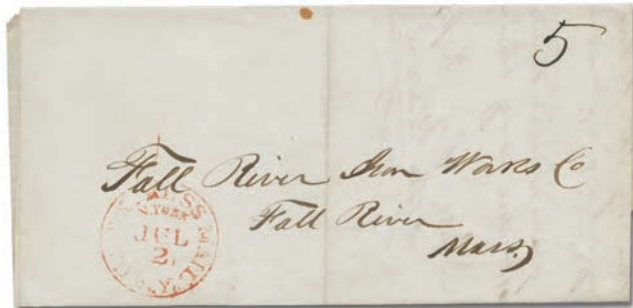 5
Fall River Iron Works Co
Fall River
Mass
MAIL
N.YORK
JUL
2